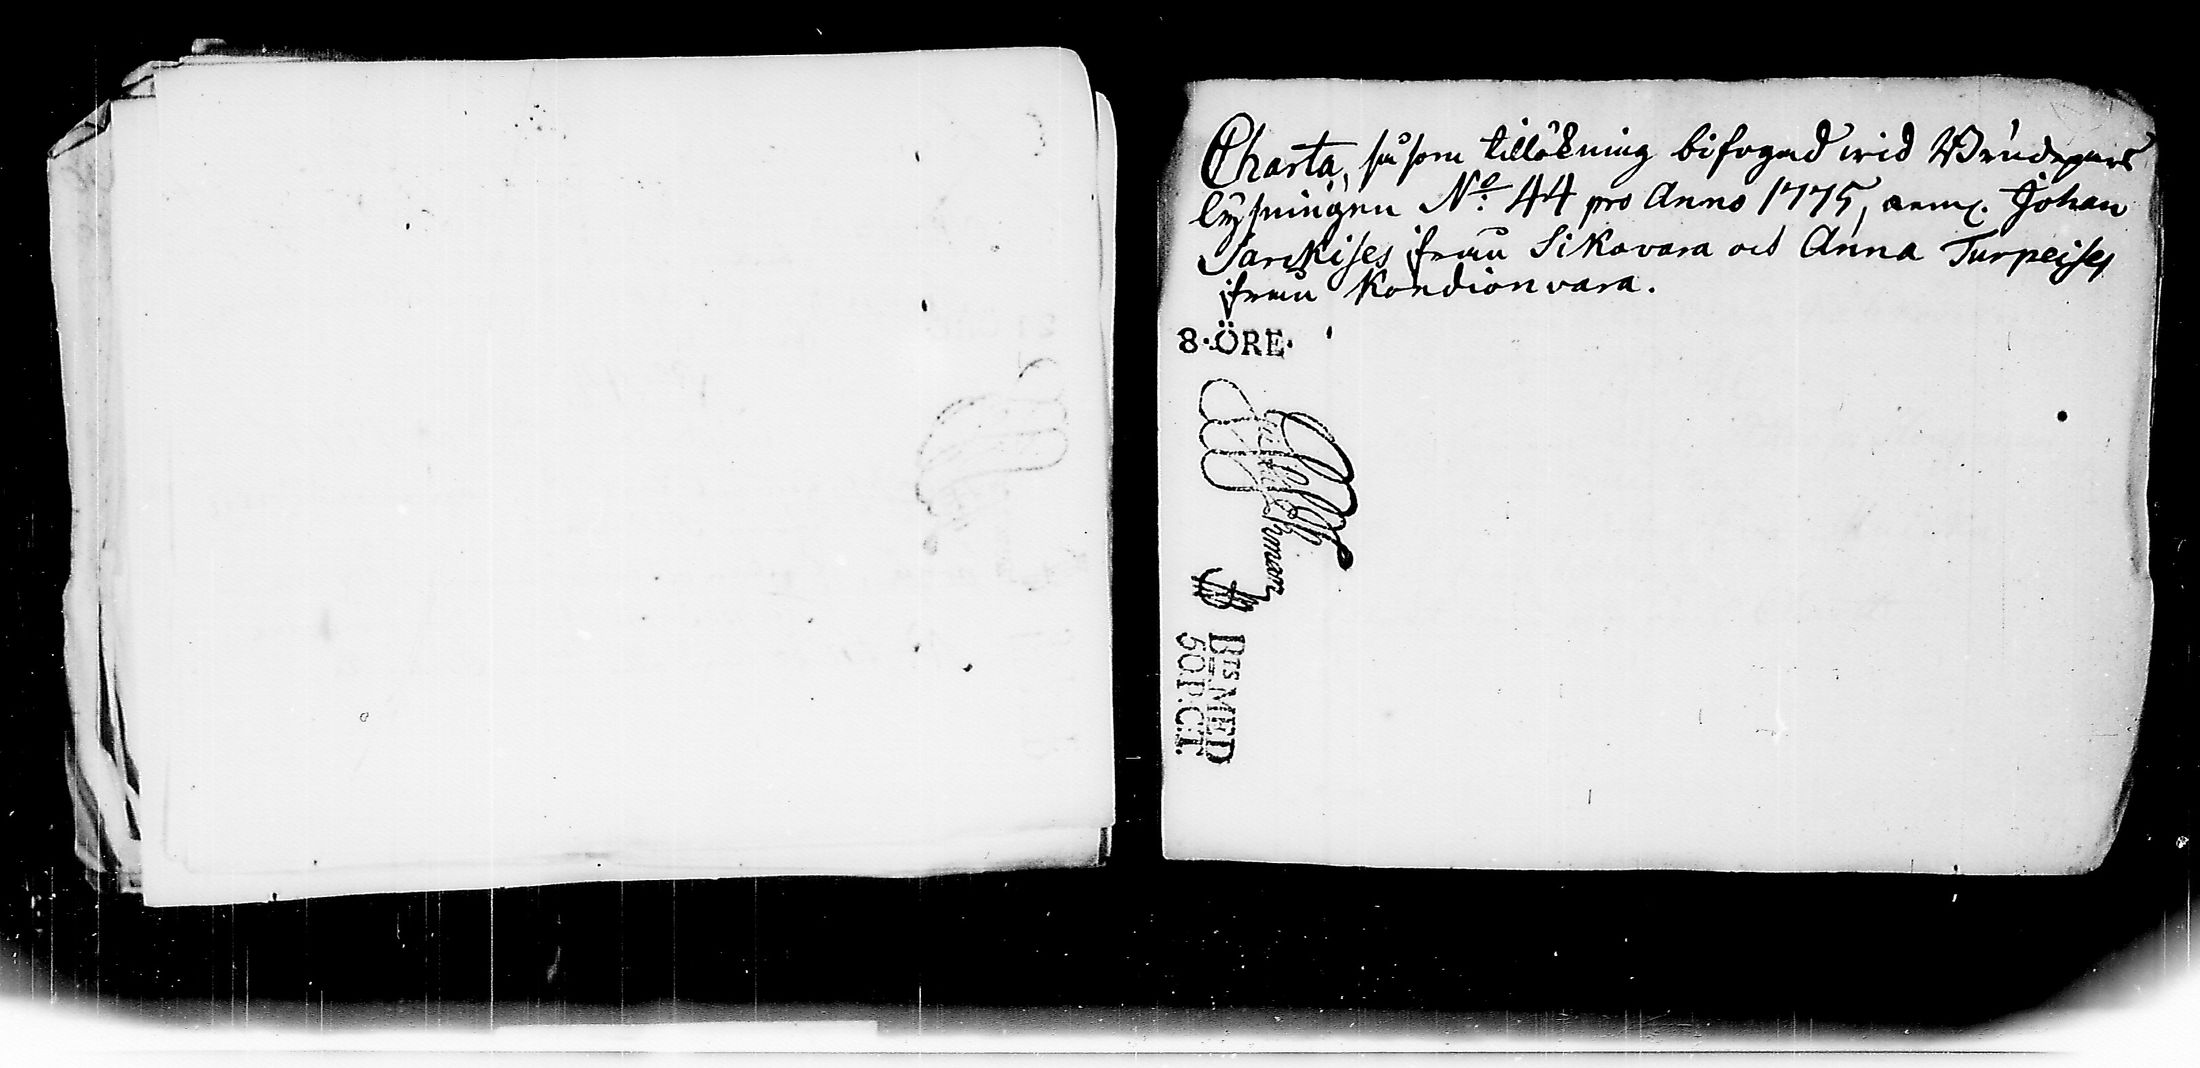 Charta, såsom tillökning bifogad wid Brudepars
lysningen No: 44 pro Anno 1775, Johan
ifrån Sikovara och Anna Turpeises
ifrån Kondionvara.
8·ÖRE·
BTS MED
50.P.CT.